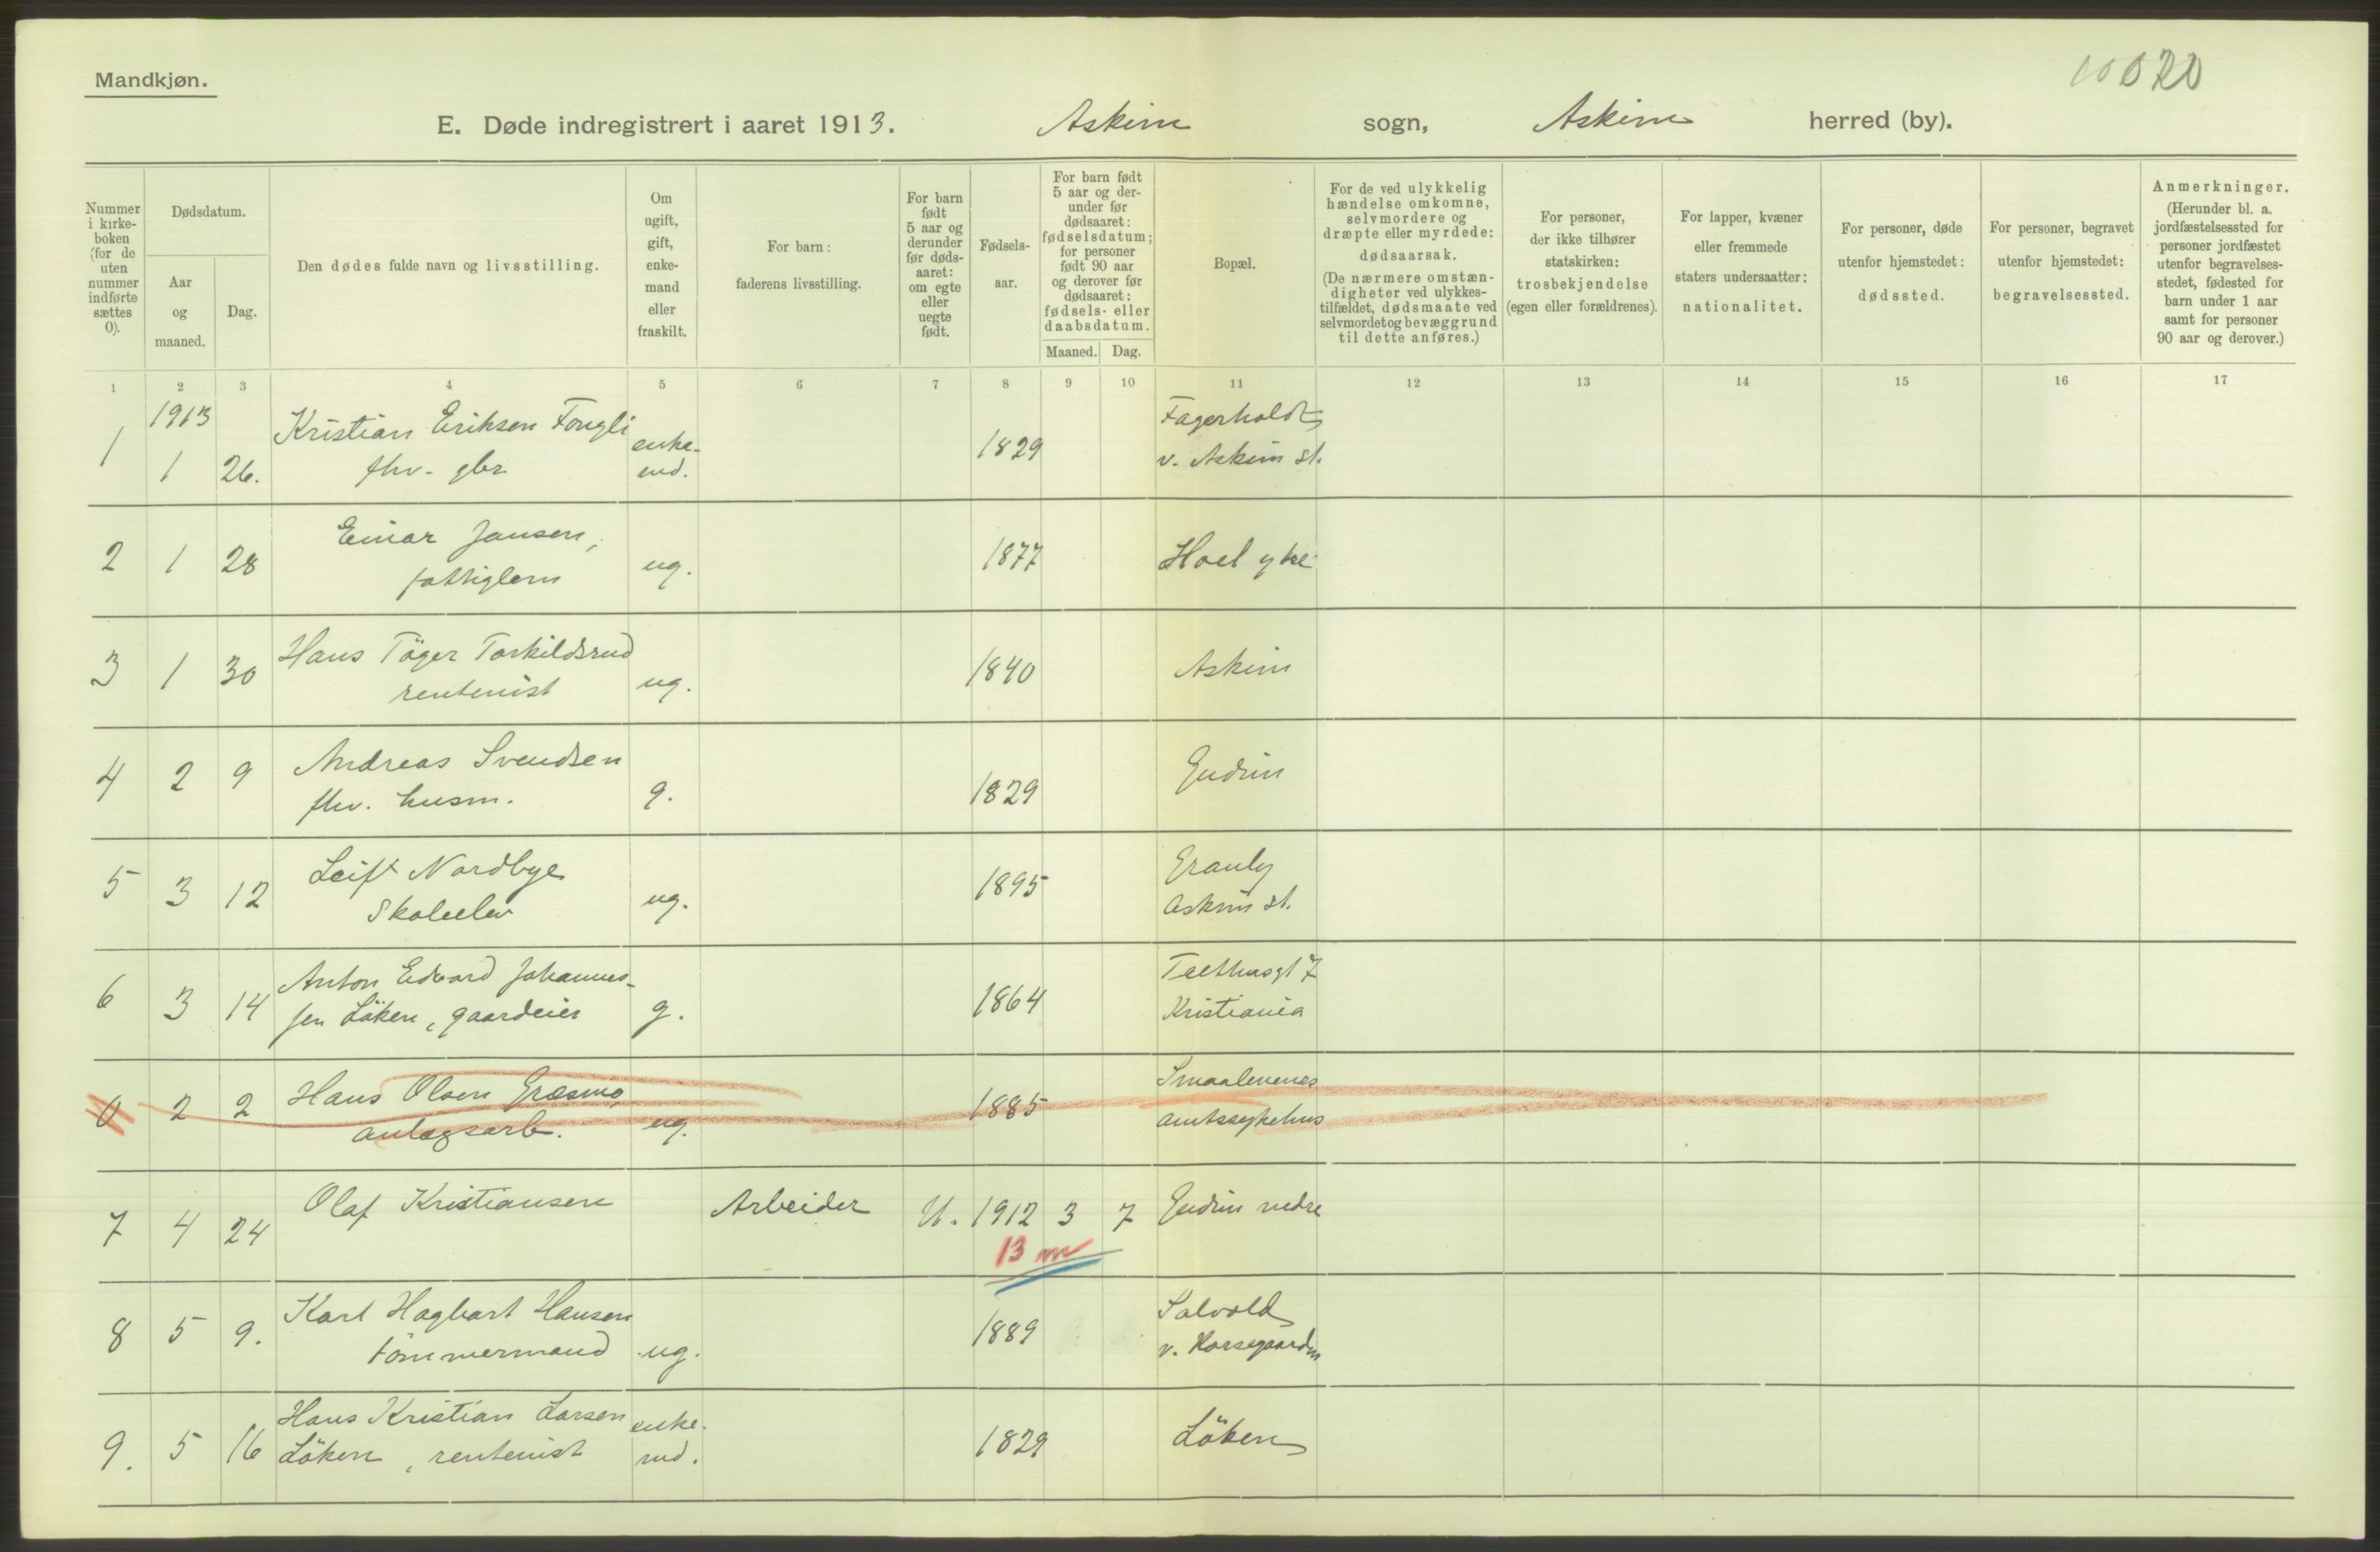 Mandkjøn.
10020
E. Døde indregistrert i aaret 1913. Askim sogn, Askim herred (by).
Nummer i kirkeboken (for de uten nummer indførte sættes 0).
Dødsdatum.
Aar og maaned.
Dag.
Den dødes fulde navn og livsstilling.
Om ugift, gift, enkemand eller fraskilt.
For barn: faderens livsstilling.
For barn født 5 aar og derunder før dødsaaret: om egte eller uegte født.
Fødselsaar.
For barn født 5 aar og derunder før dødsaaret: fødselsdatum; for personer født 90 aar og derover før dødsaaret: fødsels- eller daabsdatum.
Maaned. Dag.
Bopæl.
For de ved ulykkelig hændelse omkomne, selvmordere og dræpte eller myrdede: dødsaarsak.
(De nærmere omstændigheter ved ulykkestilfældet, dødsmaate ved selvmordet og bevæggrund til dette anføres.)
For personer, der ikke tilhører statskirken: trosbekjendelse (egen eller forældrenes).
For lapper, kvæner eller fremmede staters undersaatter: nationalitet.
For personer, døde utenfor hjemstedet: dødssted.
For personer, begravet utenfor hjemstedet: begravelsessted.
Anmerkninger.
(Herunder bl. a. jordfæstelsessted for personer jordfæstet utenfor begravelsesstedet, fødested for barn under 1 aar samt for personer 90 aar og derover.)
1 2 3 4 5 6 7 8 9 10 11 12 13 14 15 16 17
1913
1 1 26. Kristian Eriksen Fongli enke- 1829 Fagerholdt
fhv. gbr. md. v. Askim st.
2 1 28 Einar Jansen, ug. 1877 Hoel
fattiglem
3 1 30 Hans Töger Torkildsrud ug. 1840 Askim
rentenist
4 2 9 Andreas Svendsen g. 1829 Gudim
fhv. husm.
5 3 12 Leif Nordbye ug. 1895 Granly
Skoleelev Askim st.
6 3 14 Anton Edvard Johannes- g. 1864 7
sen Löken, gaardeier Kristiania
0 2 2 Hans Olsen Græsmo, ug. 1885 Smaalenenes
anlægsarb. amtssykehus
7 4 24 Olaf Kristiansen Arbeider U. 1912 3 7 Gudim nedre
13 m
8 5 9. Karl Hagbart Hansen ug. 1889 Solvold
tömmermand v. Korsegaarden
9. 5 16 Hans Kristian Larsen enke- 1829 Löken
Löken, rentenist md.